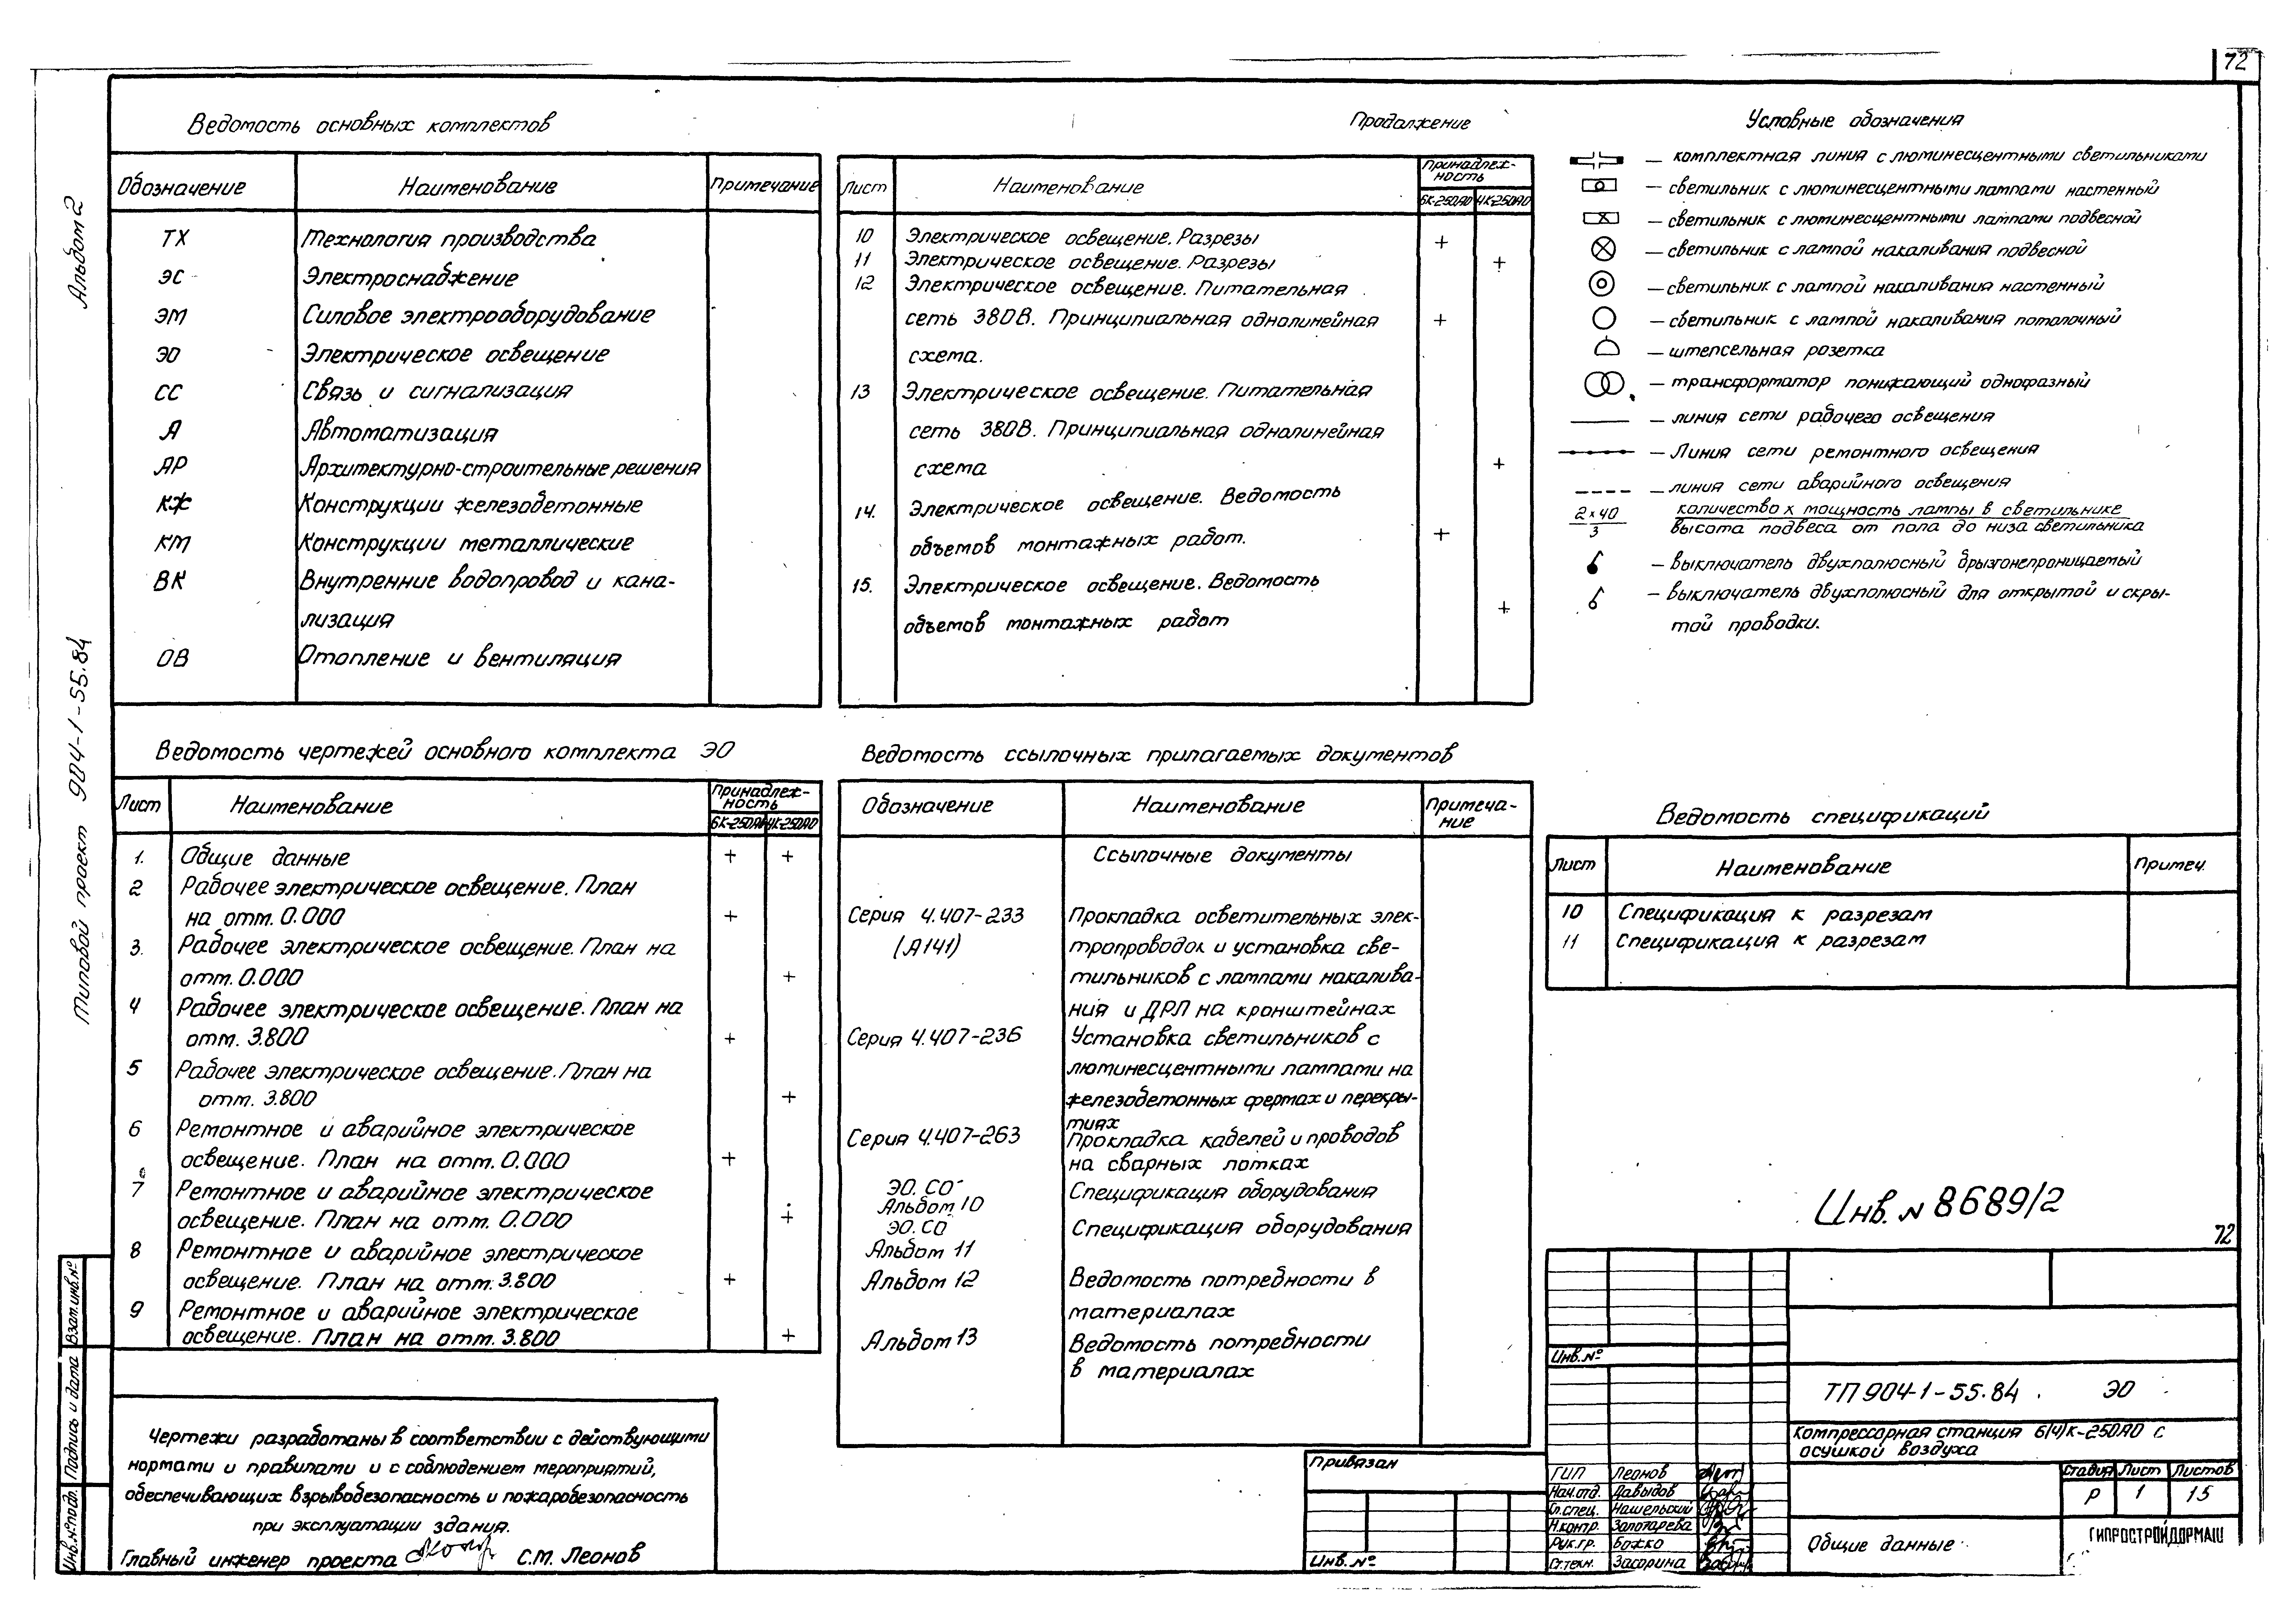 72
Альбом 2
Типовой проект 904-1-55.84
Ведомость основных комплектов
Обозначение Наименование Примечание
ТХ Технология производства
ЭС Электроснабжение
ЭМ Силовое электрооборудование
ЭО Электрическое освещение
СС Связь и сигнализация
А Автоматизация
АР Архитектурно-строительные решения
КЖ Конструкции железобетонные
КМ Конструкции металлические
ВК Внутренние водопровод и кана-
лизация
ОВ Отопление и вентиляция
Продолжение
Лист Наименование Принадлеж-
ность
6К-250АО 4К-250АО
10 Электрическое освещение. Разрезы +
11 Электрическое освещение. Разрезы +
12 Электрическое освещение. Питательная
сеть 380В. Принципиальная однолинейная +
схема.
13 Электрическое освещение. Питательная
сеть 380В. Принципиальная однолинейная
схема +
14. Электрическое освещение. Ведомость
объемов монтажных работ. +
15. Электрическое освещение. Ведомость
объемов монтажных работ +
Условные обозначения
— комплектная линия с люминесцентными светильниками
— светильник с люминесцентными лампами настенный
— светильник с люминесцентными лампами подвесной
— светильник с лампой накаливания подвесной
— светильник с лампой накаливания настенный
— светильник с лампой накаливания потолочный
— штепсельная розетка
— трансформатор понижающий однофазный
— линия сети рабочего освещения
— Линия сети ремонтного освещения
— линия сети аварийного освещения
2×40 количество х мощность лампы в светильнике
3 высота подвеса от пола до низа светильника
— выключатель двухполюсный брызгонепроницаемый
— выключатель двухполюсный для открытой и скры-
той проводки.
Ведомость чертежей основного комплекта ЭО
Лист Наименование Принадлеж-
ность
6К-250АО 4К-250АО
1. Общие данные + +
2 Рабочее электрическое освещение. План
на отм. 0.000 +
3. Рабочее электрическое освещение. План на
отм. 0.000 +
4 Рабочее электрическое освещение. План на
отм. 3.800 +
5 Рабочее электрическое освещение. План на
отм. 3.800 +
6 Ремонтное и аварийное электрическое
освещение. План на отм. 0.000 +
7 Ремонтное и аварийное электрическое
освещение. План на отм. 0.000 +
8 Ремонтное и аварийное электрическое
освещение. План на отм. 3.800 +
9 Ремонтное и аварийное электрическое
освещение. План на отм. 3.800 +
Ведомость ссылочных прилагаемых документов
Обозначение Наименование Примеча-
ние
Ссылочные документы
Серия 4.407-233 Прокладка осветительных элек-
(А141) тропроводок и установка све-
тильников с лампами накалива-
ния и ДРЛ на кронштейнах
Серия 4.407-236 Установка светильников с
люминесцентными лампами на
железобетонных фермах и перекры-
тиях
Серия 4.407-263 Прокладка кабелей и проводов
на сварных лотках
ЭО. СО Спецификация оборудования
Альбом 10
ЭО. СО Спецификация оборудования
Альбом 11
Альбом 12 Ведомость потребности в
материалах
Альбом 13 Ведомость потребности
в материалах
Ведомость спецификаций
Лист Наименование Примеч.
10 Спецификация к разрезам
11 Спецификация к разрезам
Инв. № 8689/2
72
Чертежи разработаны в соответствии с действующими
нормами и правилами и с соблюдением мероприятий,
обеспечивающих взрывобезопасность и пожаробезопасность
при эксплуатации здания.
Главный инженер проекта С.М. Леонов
Взам. инв. №
Подпись и дата
Инв. № подл.
Привязан
Инв. №
Инв. №
ТП 904-1-55.84 ЭО
Компрессорная станция 6(4)К-250АО с
осушкой воздуха
ГИП Леонов
Нач. отд. Давыдов
Гл. спец. Нашельский
Н.контр. Золотарева
Рук. гр. Божко
Ст. техн. Засорина
Стадия Лист Листов
Р 1 15
Общие данные
ГИПРОСТРОЙДОРМАШ